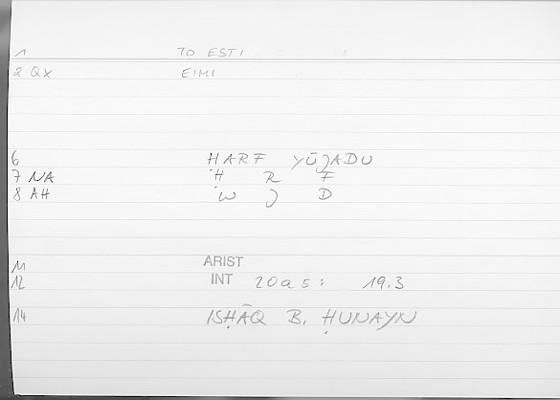 1 TO ESTI
2 QX EIMI
6 HARF YŪJADU
7 NA Ḥ R F
8 AH W J D
11 ARIST
12 INT 20a5: 19.3
14 ISḤĀQ B. ḤUNAYN